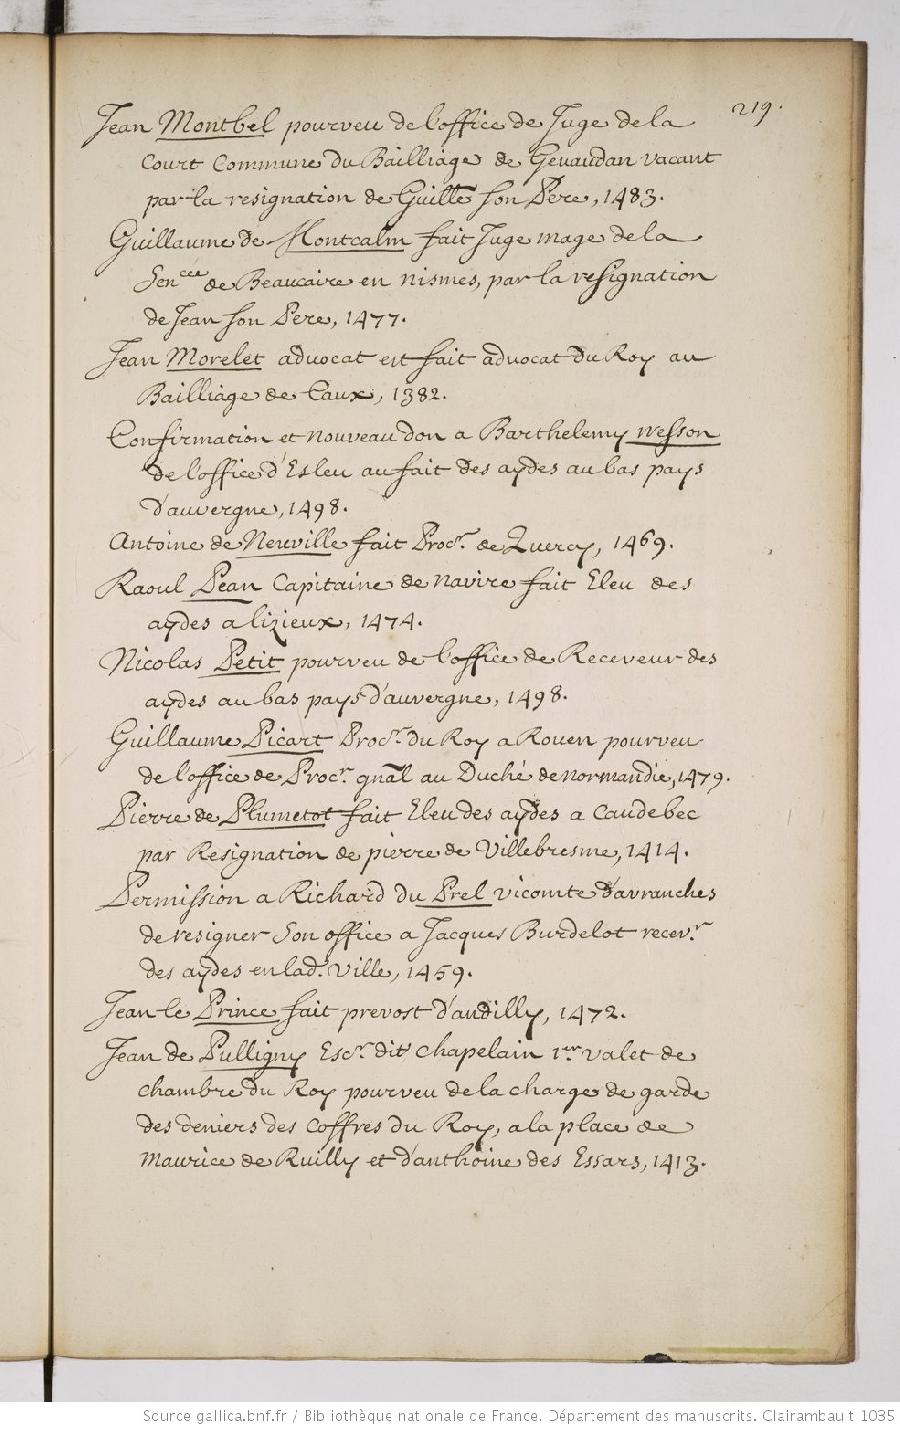 219.
Jean Montbel pourveu de l'office de Juge de la
Court Commune du Bailliage de Gevaudan vacant
par la resignation de Guille son Pere, 1483.
Guillaume de Montcalm fait Juge mage de la
Sencée de Beaucaire en nismes, par la resignation
de Jean son Pere, 1477.
Jean Morelet advocat est fait advocat du Roy au
Bailliage de Caux, 1382.
Confirmation et nouveau don a Barthelemy nesson
de l'office d'Esleu au fait des aydes au bas pays
d'auvergne, 1498.
Antoine de Neuville fait Procr. de Quercy, 1469.
Raoul Pean Capitaine de navire fait Eleu des
aydes a lizieux, 1474.
Nicolas Petit pourveu de l'office de Receveur des
aydes au bas pays d'auvergne, 1498.
Guillaume Picart Procr. du Roy a Rouen pourveu
de l'office de Procr. gnãl au Duché de normandie, 1479.
Pierre de Plumetot fait Eleu des aydes a Caudebec
par Resignation de pierre de Villebresme, 1414.
Permission a Richard du Prel vicomte d'avranches
de resigner son office a Jacques Burdelot recevr.
des aydes en lad. ville, 1459.
Jean le Prince fait prevost d'andilly, 1472.
Jean de Pulligny Escr. dit Chapelain 1er. valet de
chambre du Roy pourveu de la charge de garde
des deniers des coffres du Roy, a la place de
Maurice de Ruilly et d'anthoine des Essars, 1413.
Source gallica.bnf.fr / Bibliothèque nationale de France. Département des manuscrits. Clairambault 1035